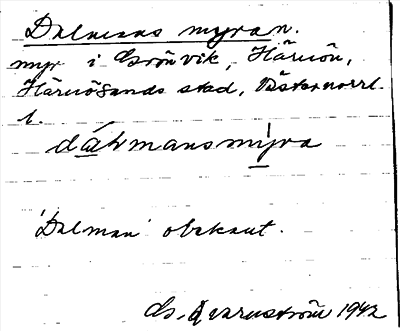 Dalmans myran.
myr i Grönvik, Härnön,
Härnösands stad, Västernorrl.
l.
dáh̥mansmỳra
'Dalman' obekant.
G. Qvarnström 1942